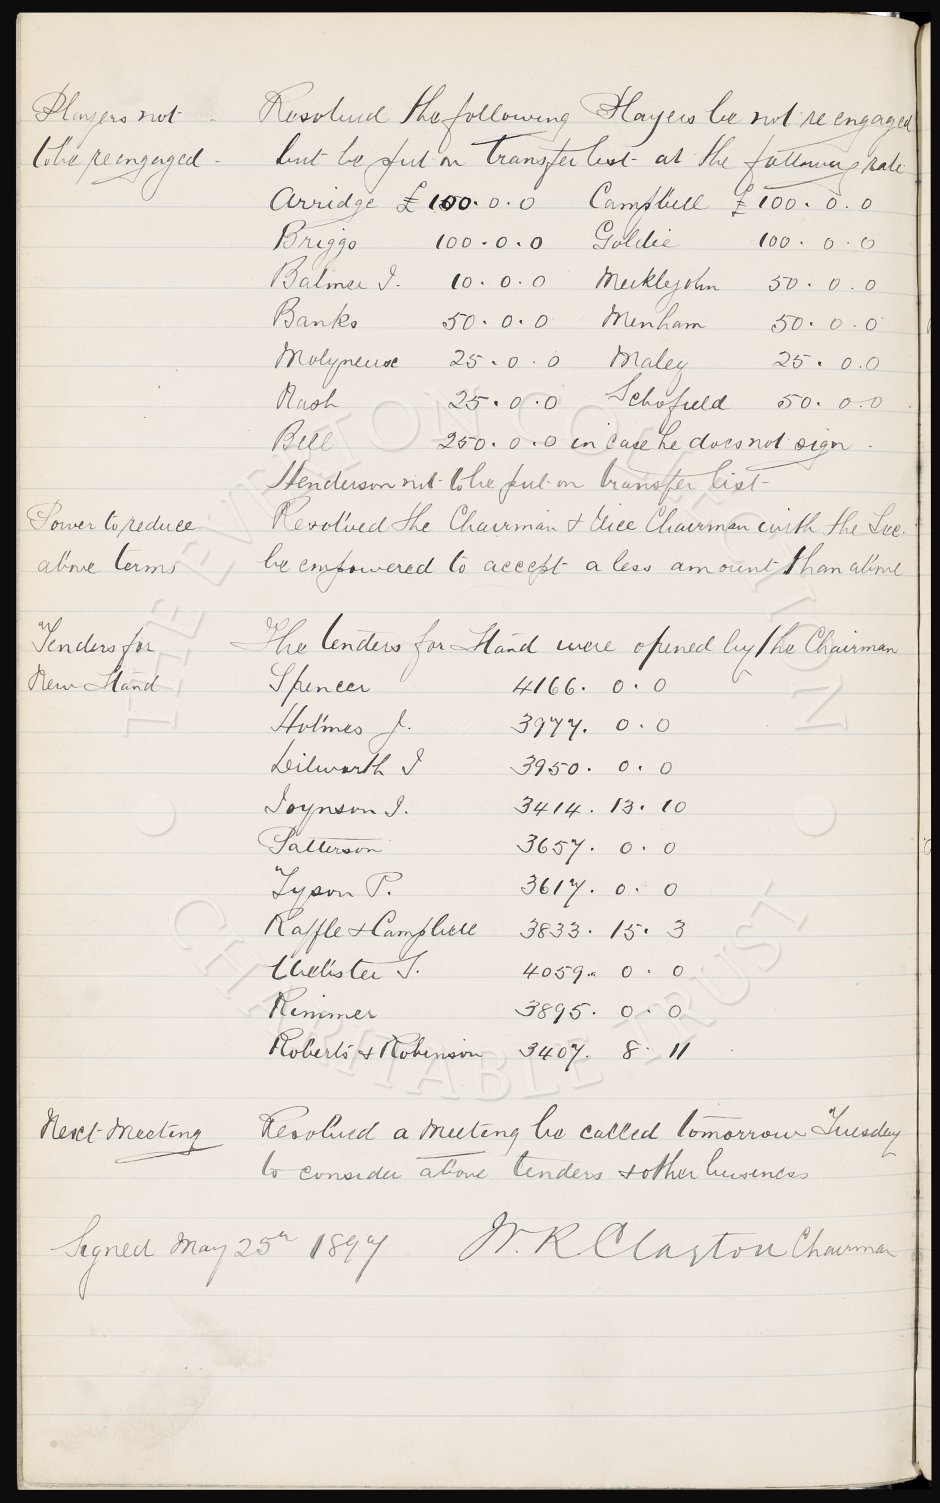 Players not
to be reengaged -
Resolved the following Players be not re engaged
but be put on transfer list at the following rate
Arridge £ 100. 0. 0 Campbell £ 100. 0. 0
Briggs 100. 0. 0 Goldie 100. 0. 0
Balmer J. 10. 0. 0 Meiklejohn 50. 0. 0
Banks 50. 0. 0 Menham 50. 0. 0
Molyneux 25. 0. 0 Maley 25. 0. 0
Nash 25. 0. 0 Schofield 50. 0. 0
Bell 250. 0. 0 in case he does not sign.
Henderson not to be put on transfer list
Power to reduce
above terms
Resolved the Chairman & Vice Chairman with the Sec.
be empowered to accept a less amount than above
Tenders for
New Stand
The tenders for Stand were opened by the Chairman
Spencer 4166. 0. 0
Holmes J. 3977. 0. 0
Dilworth J 3950. 0. 0
Joynson J. 3414. 13. 10
Patterson 3657. 0. 0
Tyson P. 3617. 0. 0
Raffle & Campbell 3833. 15. 3
Webster J. 4059. 0. 0
Rimmer 3895. 0. 0
Roberts & Robinson 3407. 8. 11
Next Meeting
Resolved a Meeting be called tomorrow Tuesday
to consider above tenders & other business
Signed May 25th 1897 W. R Clayton Chairman
THE EVERTON COLLECTION
CHARITABLE TRUST